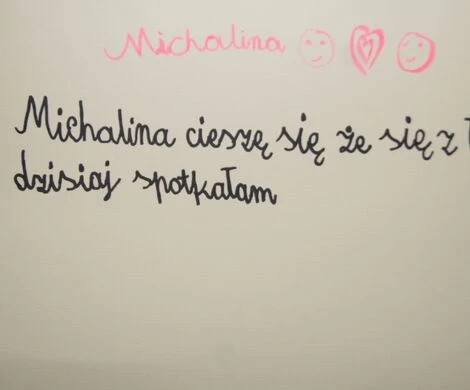 Michalina
Michalina cieszę się że się z
dzisiaj spotkałam